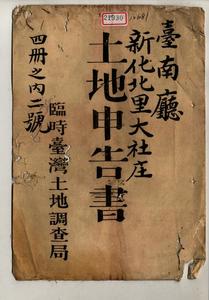 21930
臺南廳
新化北里大社庄
土地申告書
臨時臺灣土地調查局
四冊之內二號